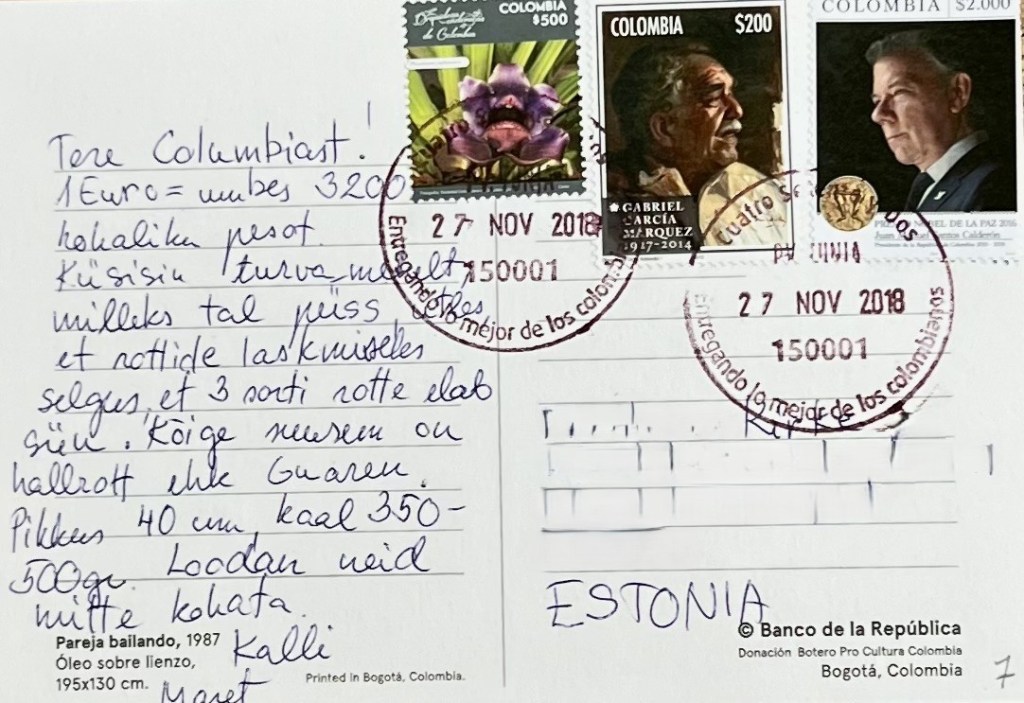 Tere Columbiast!
1 Euro = umbes 3200
kohaliku pesot.
Küsisin turvamehelt,
milleks tal püss, ütles
et rottide laskmiseks
selgus, et 3 sorti rotte elab
siin. Kõige suurem on
hallrott ehk Guaren.
Pikkus 40 cm, kaal 350-
500gr. Loodan neid
mitte kohata.
Kalli
Maret
Pareja bailando, 1987
Óleo sobre lienzo,
195x130 cm.
Printed in Bogotá, Colombia.
de Colombia
COLOMBIA
$500
COLOMBIA $200
GABRIEL
GARCÍA
MÁRQUEZ
1927-2014
COLOMBIA $2.000
PREMIO NOBEL DE LA PAZ 2016
Juan Manuel Santos Calderón
27 NOV 2018
150001
Entregando lo mejor de los colombianos
27 NOV 2018
150001
Entregando lo mejor de los colombianos
Kirke
ESTONIA
© Banco de la República
Donación Botero Pro Cultura Colombia
Bogotá, Colombia
7